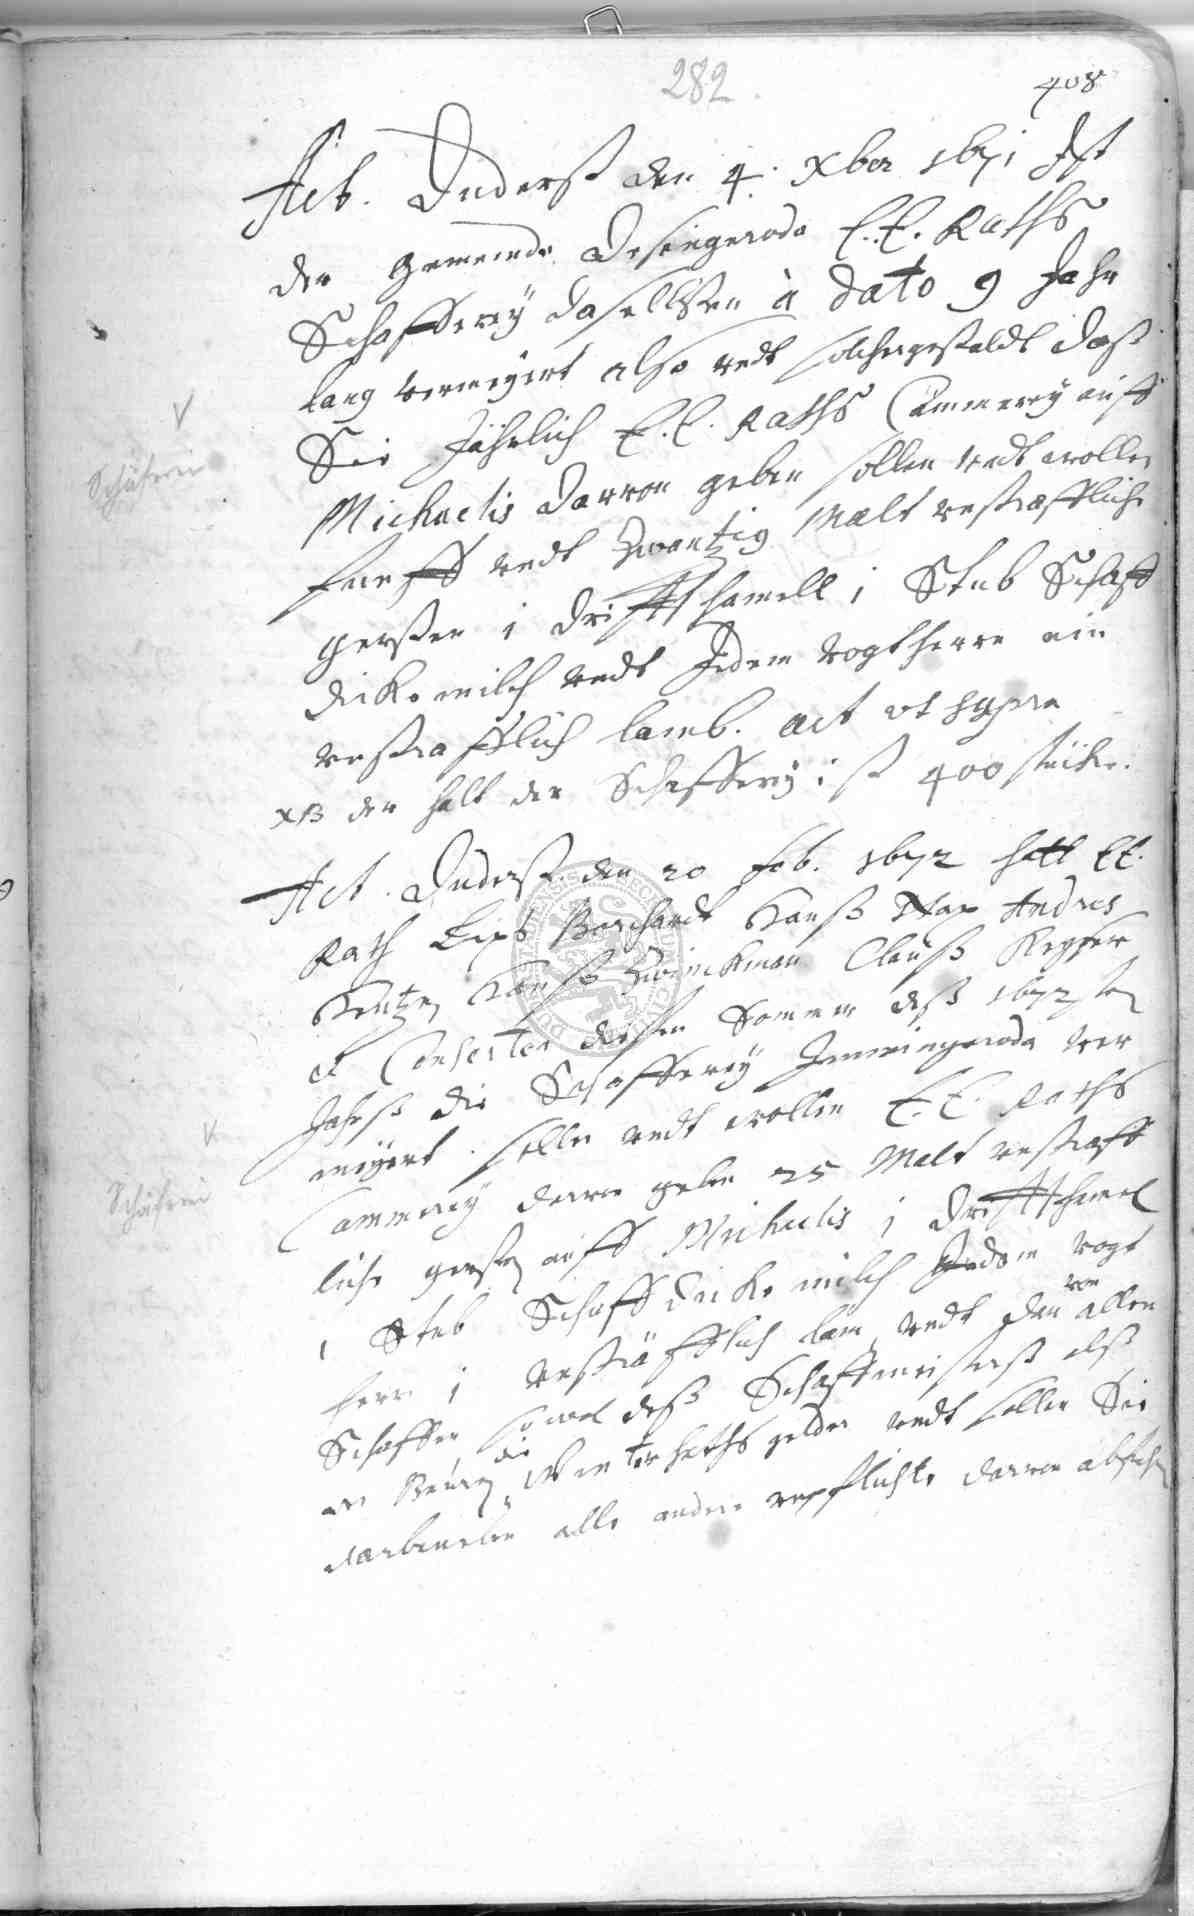 282.
408
Act. Duderst den 4. Xber 1671 Ist
der Gemeinde Desingeroda E.E. Raths
Schäfferey daselbsten à dato 9 Jahr
lang vermeyert also undt solchergestaldt daß
Sie Jährlich E.E. Raths Cämmerey auff
Michaelis darvon geben sollen undt wollen
fünff undt Zwantzig Malt unstraffliche
gersten 1 drifthamell 1 Stub Schaff
dicke milch undt Jedem Vogtherrn ein
unstrafflich lamb. act ut supra
NB der halt der Schefferey ist 400 stücke.
Schäferei
Act. Duderst. den 20 feb. 1672 hatt EE.
Rath Lips Borchardt Hanß Nap Andres
Hentzen Hanß Zwinckman Clauß Kepper
et Consorten diesen Sommer deß 1672ten
Jahrß die Schäfferey Immingeroda ver
meyert. sollen undt wollen E.E. Raths
Cammerey darvon geben 25 Malt unstraff
liche gersten auff Michaelis 1 drifthamel
1 Stub Schaff dicke milch Jedem Vogt
herrn 1 unsträfflich lam undt den von allen
Schaffen sowol deß Schaffmeisterß alß
der Bauren die gelder undt sollen Sie
darbeneben alle andere unpflichte darvon
Schäferei